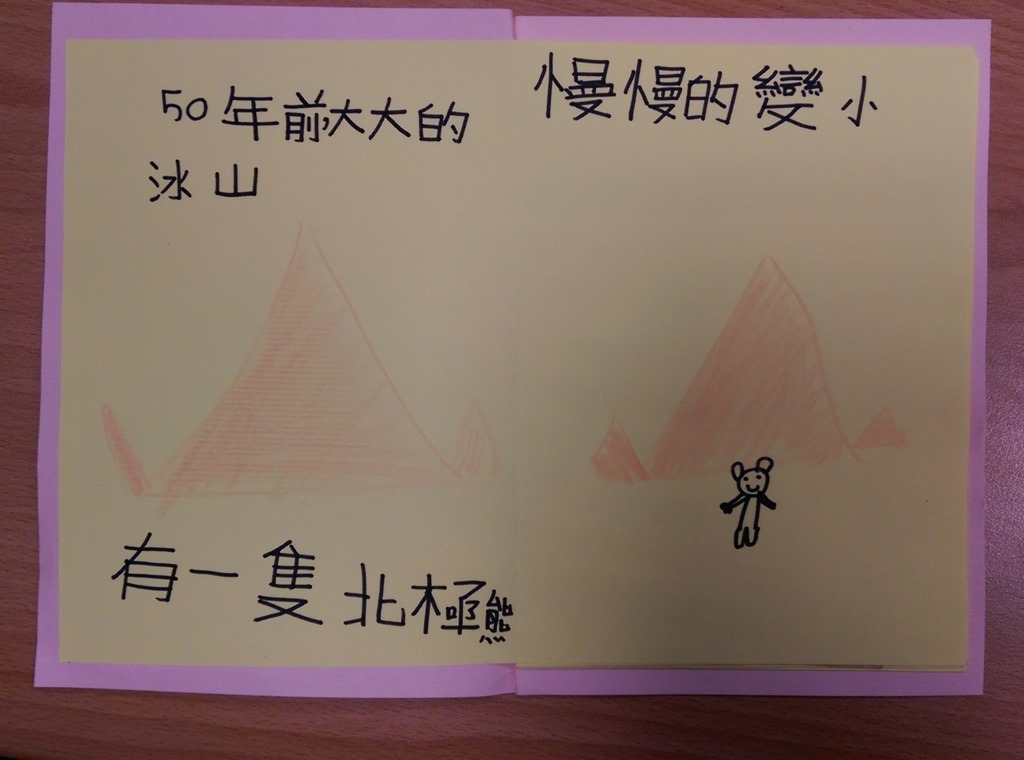 50年前大大的
冰山
慢慢的變小
有一隻北極熊